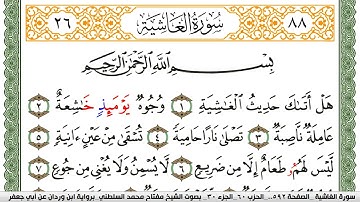 ٨٨ سُورَةُ الغَاشِيَةِ ٢٦
بِسْمِ اللَّهِ الرَّحْمَٰنِ الرَّحِيمِ
هَلْ أَتَىٰكَ حَدِيثُ الْغَـٰشِيَةِ ١ وُجُوهٌ يَوْمَئِذٍ خَـٰشِعَةٌ ٢
عَامِلَةٌ نَّاصِبَةٌ ٣ تَصْلَىٰ نَارًا حَامِيَةً ٤ تُسْقَىٰ مِنْ عَيْنٍ ءَانِيَةٍ ٥
لَّيْسَ لَهُمْ طَعَامٌ إِلَّا مِن ضَرِيعٍ ٦ لَّا يُسْمِنُ وَلَا يُغْنِي مِن جُوعٍ ٧
سورة الغاشية الصفحة ٥٩٢ـ الحزب ٦٠ الجزء ٣٠ـ بصوت الشيخ مفتاح محمد السلطني برواية ابن وردان عن أبي جعفر